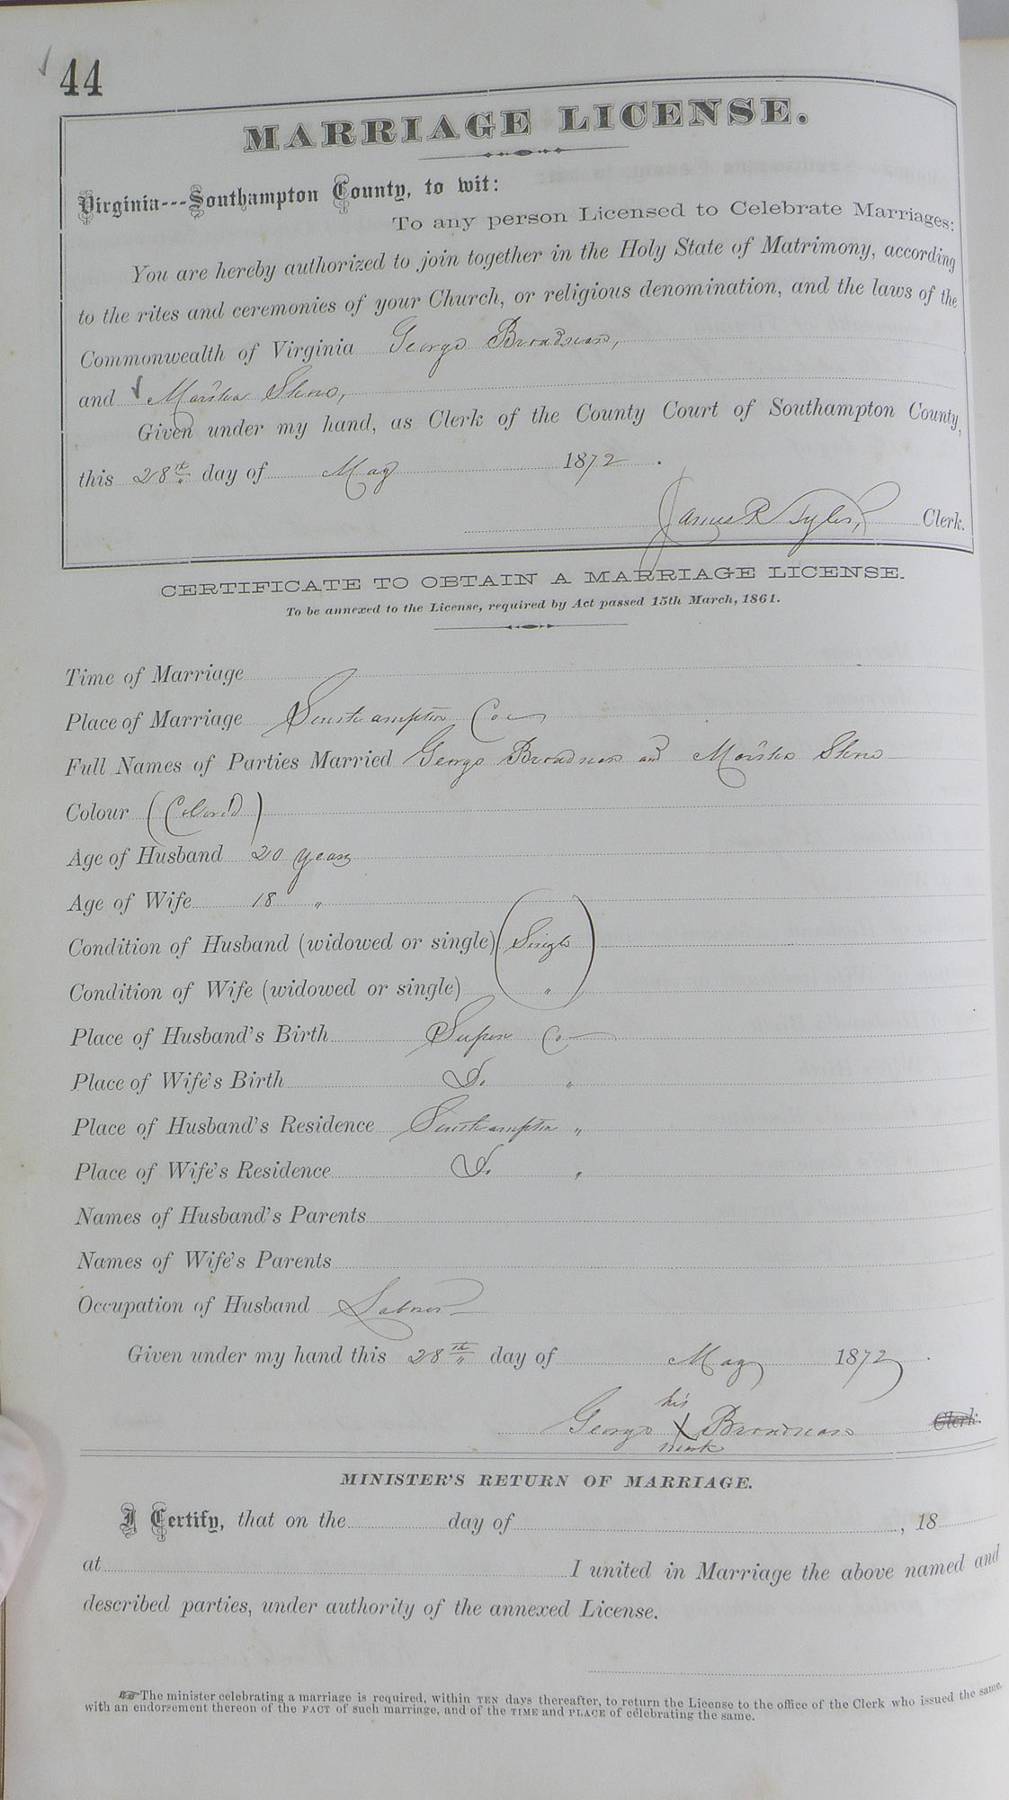 44
MARRIAGE LICENSE.
Virginia---Southampton County, to wit:
To any person Licensed to Celebrate Marriages:
You are hereby authorized to join together in the Holy State of Matrimony, according
to the rites and ceremonies of your Church, or religious denomination, and the laws of the
Commonwealth of Virginia George Broadnax,
and
Given under my hand, as Clerk of the County Court of Southampton County,
this 28th day of May 1872.
James R Tyler, Clerk.
CERTIFICATE TO OBTAIN A MARRIAGE LICENSE.
To be annexed to the License, required by Act passed 15th March, 1861.
Time of Marriage
Place of Marriage Southampton Co
Full Names of Parties Married George Broadnax and
Colour (Colored)
Age of Husband 20 years
Age of Wife 18 "
Condition of Husband (widowed or single) (Single
Condition of Wife (widowed or single) " )
Place of Husband's Birth Co
Place of Wife's Birth Do. "
Place of Husband's Residence Southampton "
Place of Wife's Residence Do. "
Names of Husband's Parents
Names of Wife's Parents
Occupation of Husband Laborer
Given under my hand this 28th day of May 1872.
his
George X Broadnax Clerk.
mark
MINISTER'S RETURN OF MARRIAGE.
I Certify, that on the day of , 18
at I united in Marriage the above named and
described parties, under authority of the annexed License.
☞The minister celebrating a marriage is required, within TEN days thereafter, to return the License to the office of the Clerk who issued the same,
with an endorsement thereon of the FACT of such marriage, and of the TIME and PLACE of celebrating the same.